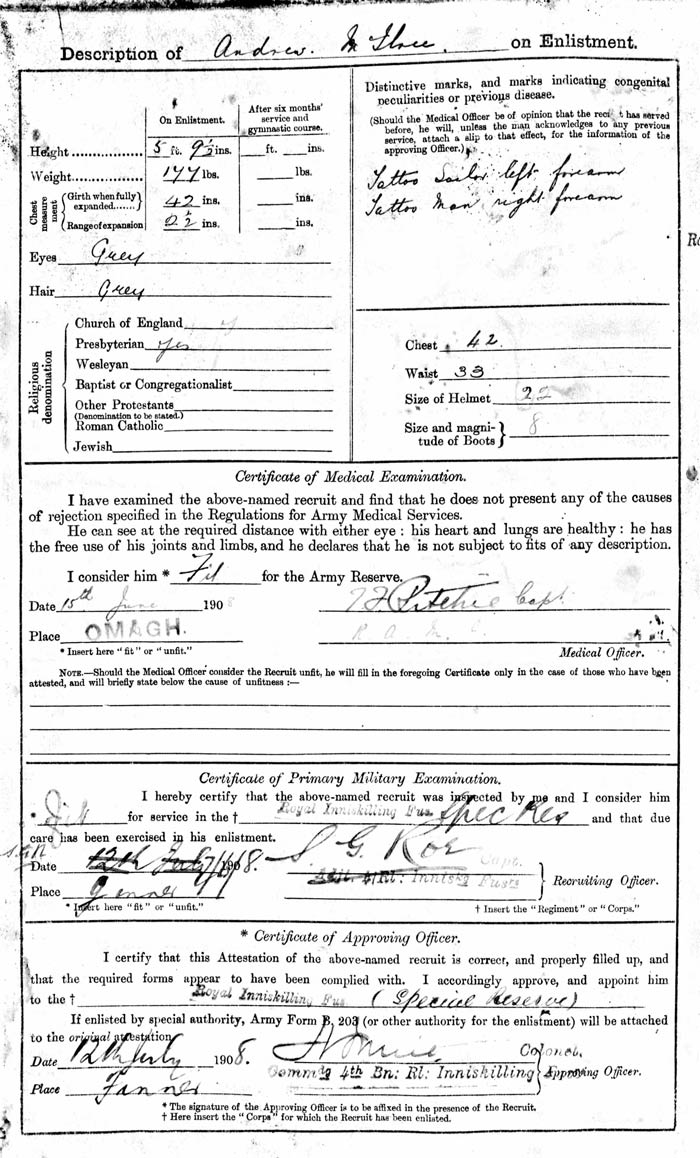 Description of Andrew on Enlistment.
On Enlistment.
After six months' service and gymnastic course.
Height 5 ft. 9½ ins. ft. ins.
Weight 144 lbs. lbs.
Chest measurement
Girth when fully expanded 42 ins. ins.
Range of expansion 2½ ins. ins.
Eyes Grey
Hair Grey
Religious denomination
Church of England
Presbyterian yes
Wesleyan
Baptist or Congregationalist
Other Protestants
(Denomination to be stated.)
Roman Catholic
Jewish
Distinctive marks, and marks indicating congenital
peculiarities or previous disease.
(Should the Medical Officer be of opinion that the recruit has served
before, he will, unless the man acknowledges to any previous
service, attach a slip to that effect, for the information of the
approving Officer.)
Tattoo Sailor left forearm
Tattoo Man right forearm
Chest 42.
Waist 33
Size of Helmet 22
Size and magnitude of Boots 8
Certificate of Medical Examination.
I have examined the above-named recruit and find that he does not present any of the causes
of rejection specified in the Regulations for Army Medical Services.
He can see at the required distance with either eye : his heart and lungs are healthy : he has
the free use of his joints and limbs, and he declares that he is not subject to fits of any description.
I consider him * Fit for the Army Reserve.
Date 15th June 1908 Ritchie Capt.
Place OMAGH. R.A.M.C.
* Insert here "fit" or "unfit." Medical Officer.
NOTE.—Should the Medical Officer consider the Recruit unfit, he will fill in the foregoing Certificate only in the case of those who have been
attested, and will briefly state below the cause of unfitness :—
Certificate of Primary Military Examination.
I hereby certify that the above-named recruit was inspected by me and I consider him
* Fit for service in the † Royal Inniskilling Fus. Spec Res and that due
care has been exercised in his enlistment.
S.G.R
Date 12th July 1908. S. G. Roe Capt.
Place Adjt. 4/Rl: Innisk'g Fusrs Recruiting Officer.
* Insert here "fit" or "unfit." † Insert the "Regiment" or "Corps."
* Certificate of Approving Officer.
I certify that this Attestation of the above-named recruit is correct, and properly filled up, and
that the required forms appear to have been complied with. I accordingly approve, and appoint him
to the † Royal Inniskilling Fus. (Special Reserve)
If enlisted by special authority, Army Form B. 203 (or other authority for the enlistment) will be attached
to the original attestation
Date 12th July 1908. Colonel.
Comm'g 4th Bn: Rl: Inniskilling Approving Officer.
Place
* The signature of the Approving Officer is to be affixed in the presence of the Recruit.
† Here insert the "Corps" for which the Recruit has been enlisted.